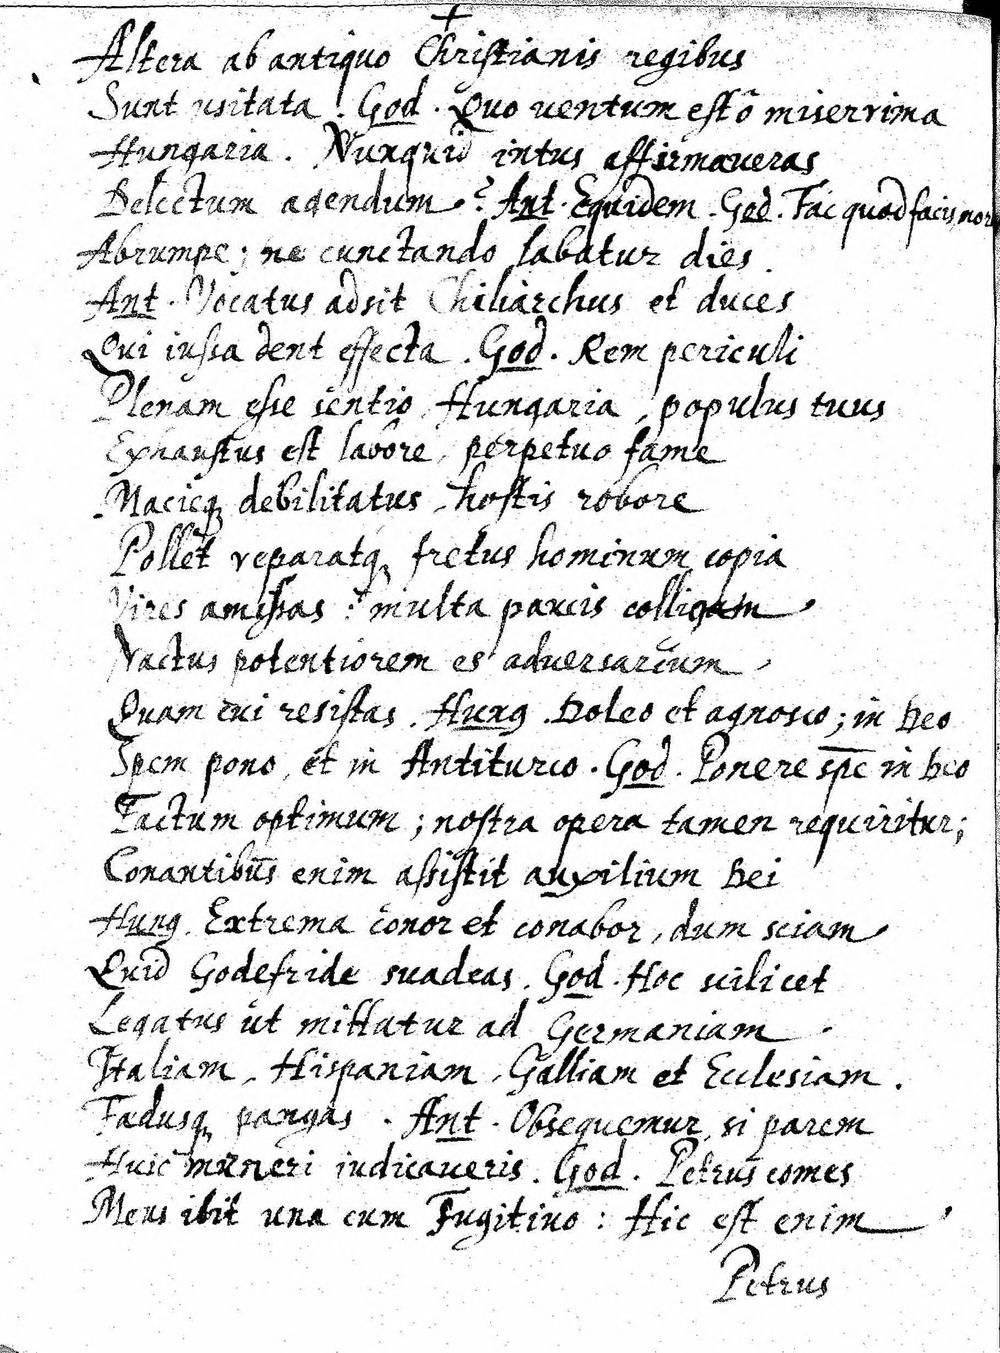 Altera ab antiquo Christianis regibus
Sunt usitata. God. Quo uentum est ô miserrima
Hungaria. Nunquid intus affirmaueras
Delectum agendum? Ant. Equidem. God. Fac quod facis, mor
Abrumpe; ne cunctando labatur dies.
Ant. Vocatus adsit Chiliarchus et duces
Qui iussa dent effecta. God. Rem periculi
Plenam esse sentio, Hungaria, populus tuus
Exhaustus est labore, perpetuo fame
Macieq, debilitatus, hostis robore
Pollet reparatq, fretus hominum copia
Vires amissas: multa paucis colligam
Nactus potentiorem es aduersarium,
Quam cui resistas. Hung. Doleo et agnosco; in Deo
Spem pono, et in Antiturco. God. Ponere spē in Deo
Factum optimum; nostra opera tamen requiritur;
Conantibus enim assistit auxilium Dei
Hung. Extrema conor et conabor, dum sciam
Quid Godefride suadeas. God. Hoc scilicet
Legatus ut mittatur ad Germaniam
Italiam, Hispaniam, Galliam et Ecclesiam.
Fadusq, pangas. Ant. Obsequemur, si parem
Huic muneri iudicaueris. God. Petrus comes
Meus ibit una cum Fugitiuo: Hic est enim
Petrus